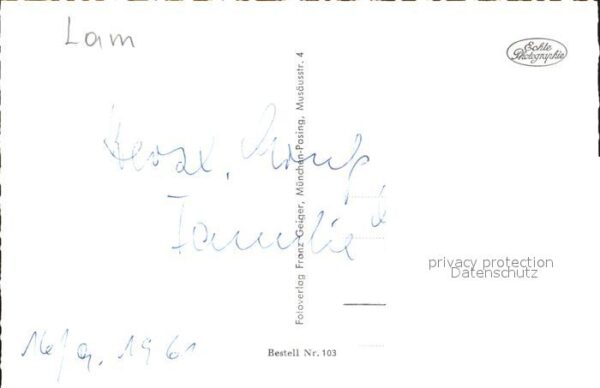 Lam
Echte
Photographie
Fotoverlag Franz Geiger, München-Pasing, Musäusstr. 4
Familie
privacy protection
Datenschutz
16/9. 1961
Bestell Nr. 103